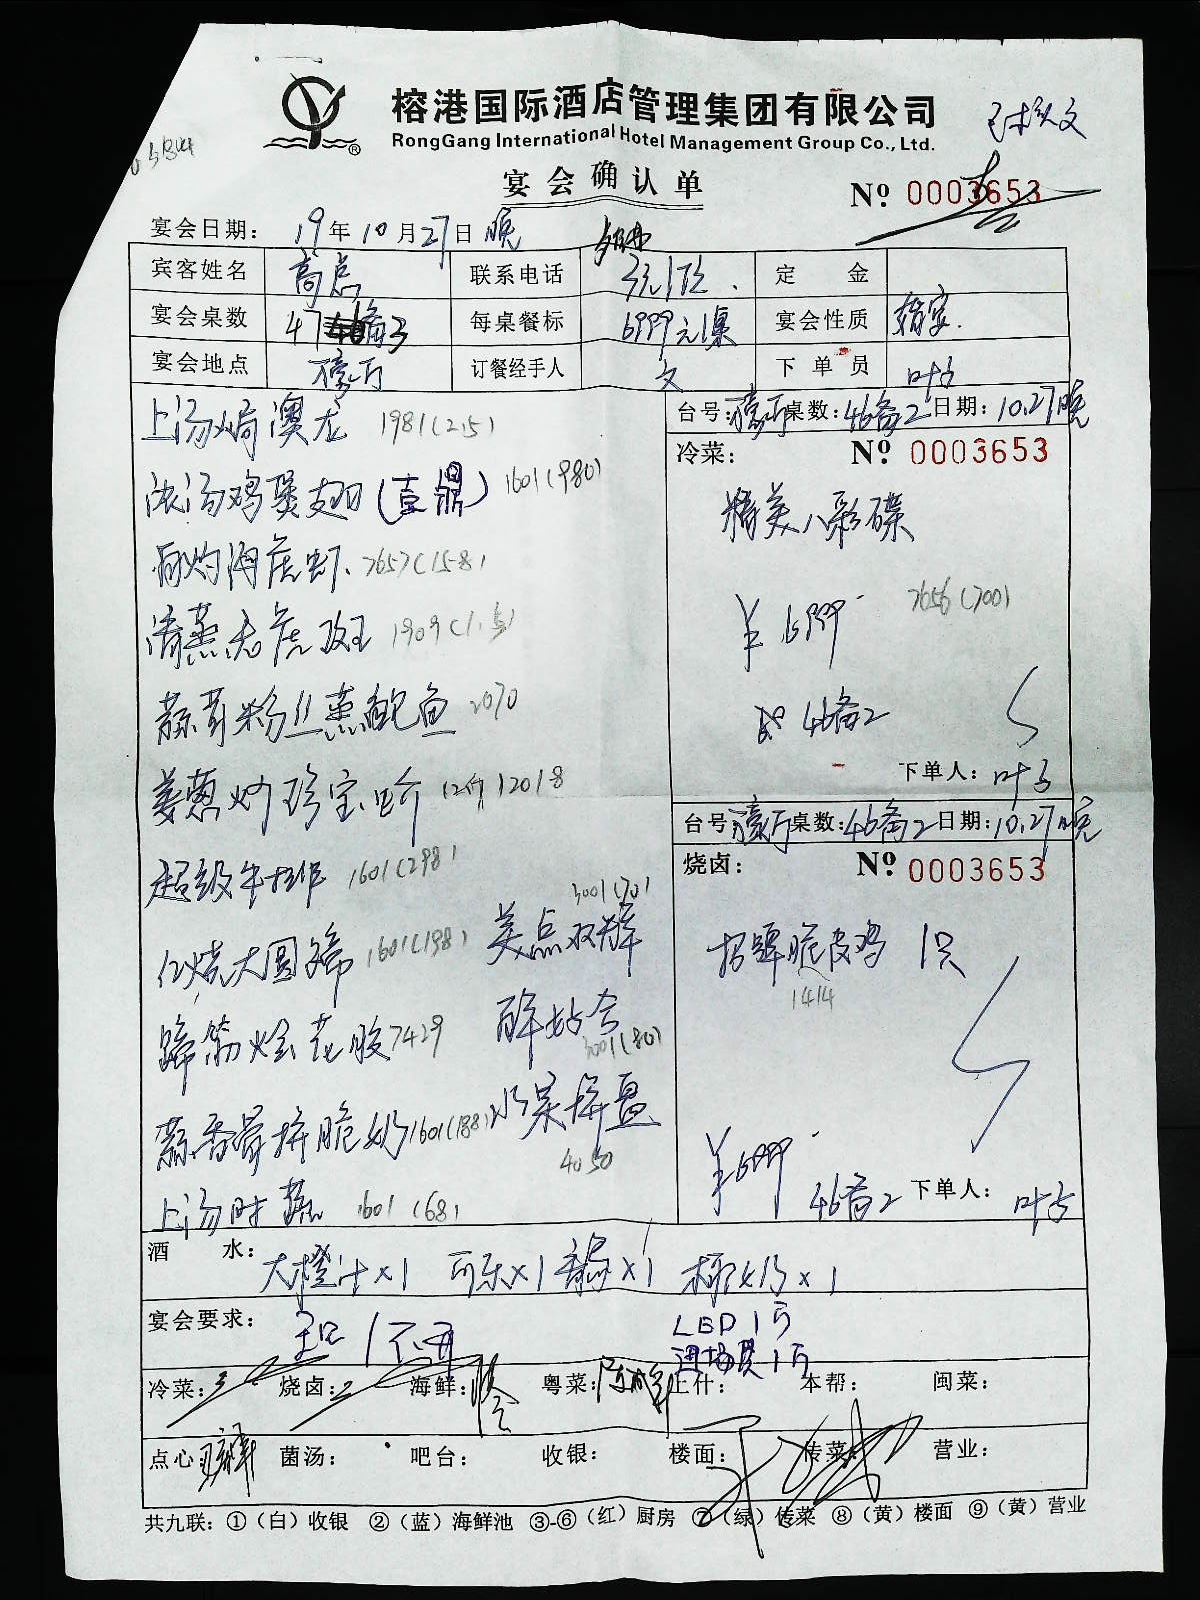 榕港国际酒店管理集团有限公司
RongGang International Hotel Management Group Co., Ltd.
宴会确认单
№ 0003653
宴会日期： 19年10月27日 晚
宾客姓名 高总 联系电话 定金
宴会桌数 47 备3 每桌餐标 6999元/桌 宴会性质
宴会地点 订餐经手人 文 下单员 叶子
上汤焗澳龙 1981(2.5)
浓汤鸡煲翅(壹鼎) 1601(980)
白灼海虎虾 7657(158)
清蒸老虎斑 1909
蒜茸粉丝蒸鲍鱼 2070
姜葱炒珍宝蚧 1201-8
超级牛排 1601(298)
红烧大圆蹄 1601(198)
蹄筋烩花胶 7429
蒜香骨拼脆奶 1601(188)
上汤时蔬 1601(68)
美点双辉 3001(70)
3001(80)
水果拼盘
4050
台号: 桌数: 46备2 日期: 10.27晚
冷菜： № 0003653
精美八彩碟
7656(700)
¥6999
46备2
下单人： 叶子
台号: 桌数: 46备2 日期: 10.27晚
烧卤： № 0003653
招牌脆皮鸡 1只
1414
¥6999
46备2 下单人： 叶子
酒水： 大橙汁×1 可乐×1 ×1 椰奶×1
宴会要求：
LED 1万
进场费1万
冷菜： 烧卤： 海鲜： 粤菜： 上什： 本帮： 闽菜：
点心 菌汤： 吧台： 收银： 楼面： 传菜： 营业：
共九联：①（白）收银 ②（蓝）海鲜池 ③-⑥（红）厨房 ⑦（绿）传菜 ⑧（黄）楼面 ⑨（黄）营业